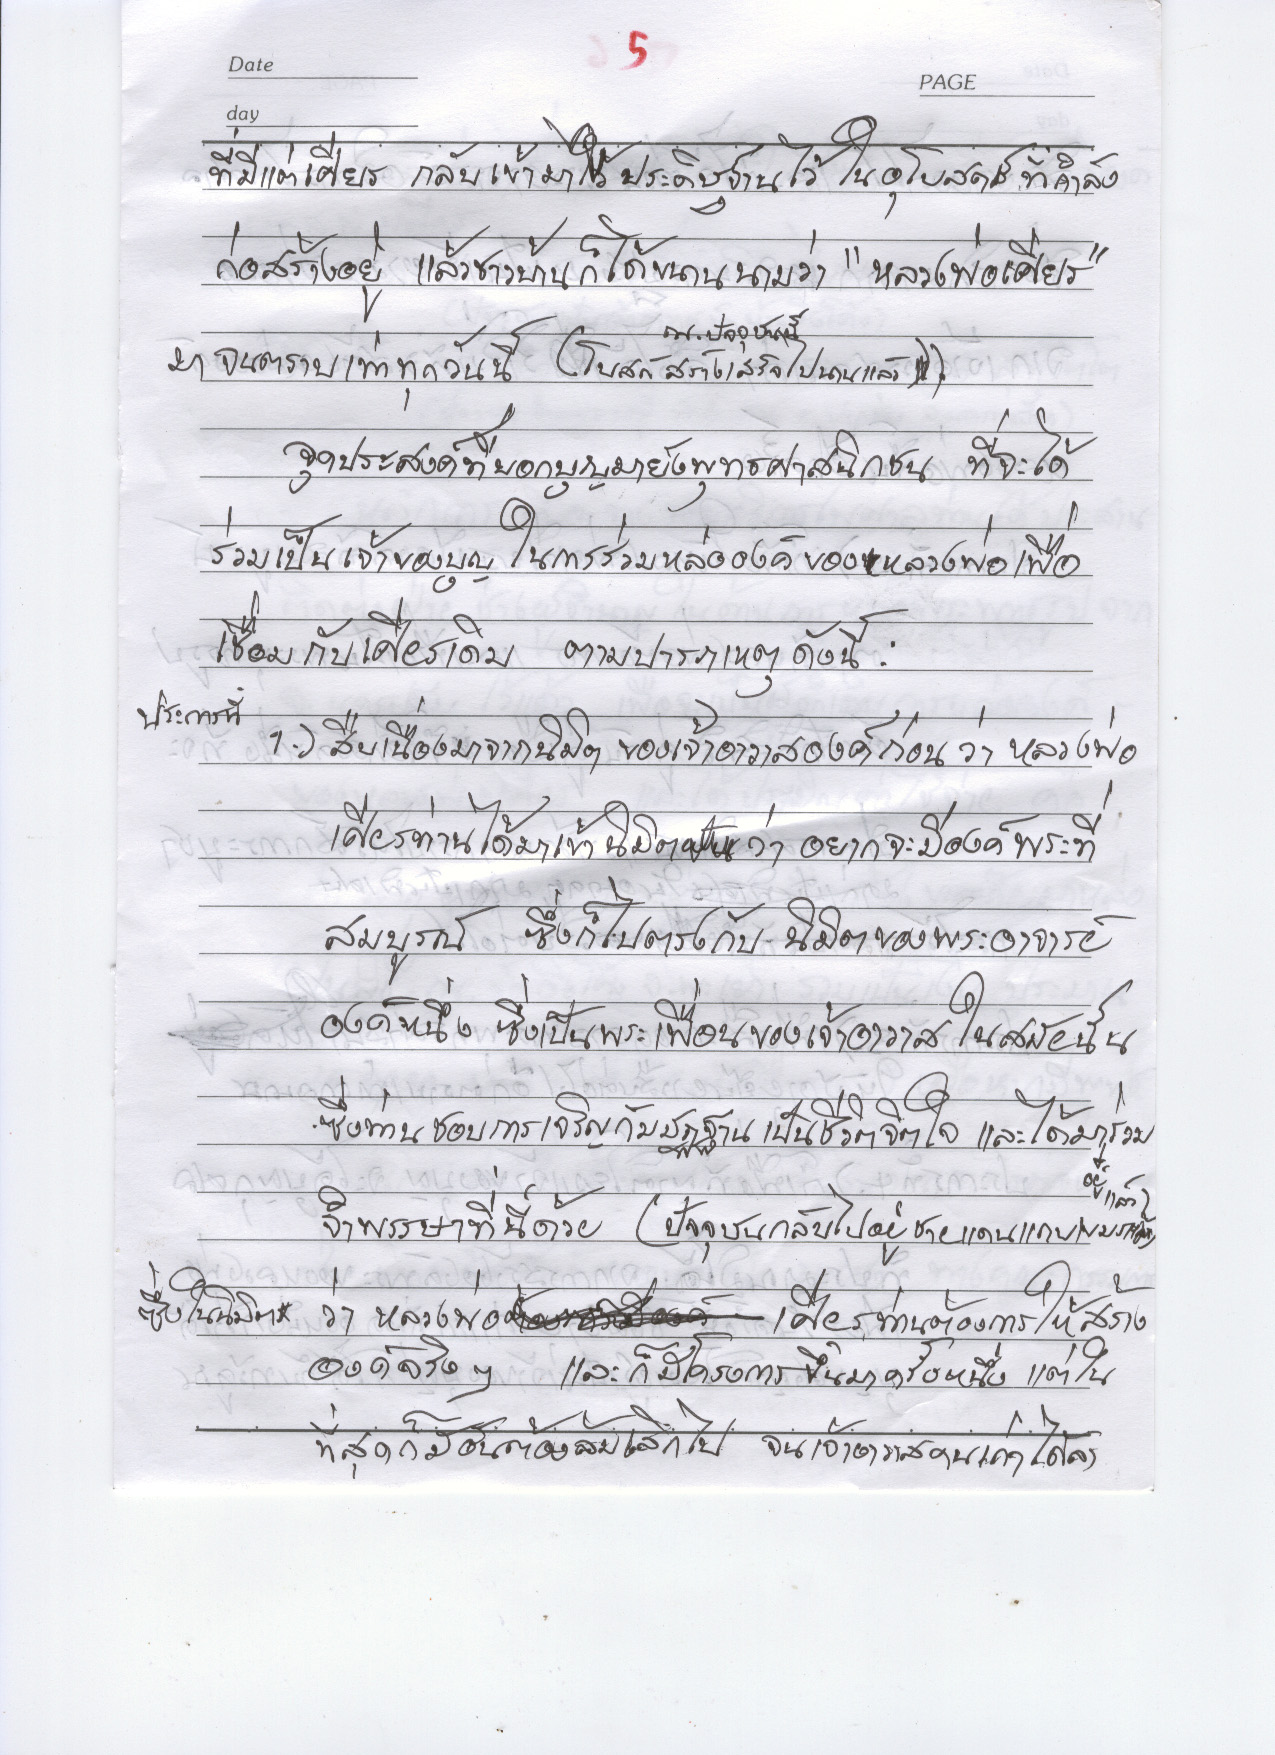 5
Date
PAGE
day
ที่มีแต่เศียร กลับเข้ามาไว้ประดิษฐ์ฐานไว้ ในอุโบสถ์ ที่กำลัง
ก่อสร้างอยู่ แล้วชาวบ้านก็ได้ขนานนามว่า "หลวงพ่อเศียร"
ณ. ปัจจุบันนี้
มาจนตราบเท่าทุกวันนี้ (โบสถ์สร้างเสร็จไปนานแล้ว).
จุดประสงค์ที่บอกบุญมายังพุทธศาสนิกชน ที่จะได้
ร่วมเป็นเจ้าของบุญ ในการร่วมหล่อองค์ของหลวงพ่อเพื่อ
เชื่อมกับเศียรเดิม ตามปารภเหตุดังนี้ :
ประการที่
1.) สืบเนื่องมาจากนิมิต ของเจ้าอาวาสองค์ก่อน ว่า หลวงพ่อ
เศียรท่านได้มาเข้านิมิต ว่า อยากจะมีองค์พระที่
สมบูรณ์ ซึ่งก็ไปตรงกับ นิมิตของพระอาจารย์
องค์หนึ่ง ซึ่งเป็นพระเพื่อนของเจ้าอาวาส ในสมัยนั้น
ซึ่งท่านชอบการเจริญกัมมัฏฐานเป็นชีวิตจิตใจ และได้มาร่วม
อยู่แล้ว
จำพรรษาที่นี่ด้วย (ปัจจุบันกลับไปอยู่ชายแดนแถบพม่า)
ซึ่งในนิมิต ว่า หลวงพ่อ เศียร ท่านต้องการให้สร้าง
องค์จริงๆ และก็มีโครงการขึ้นมาครั้งหนึ่ง แต่ใน
ที่สุดก็มีอันต้องล้มเลิกไป จนเจ้าอาวาสคนเก่าได้ลา